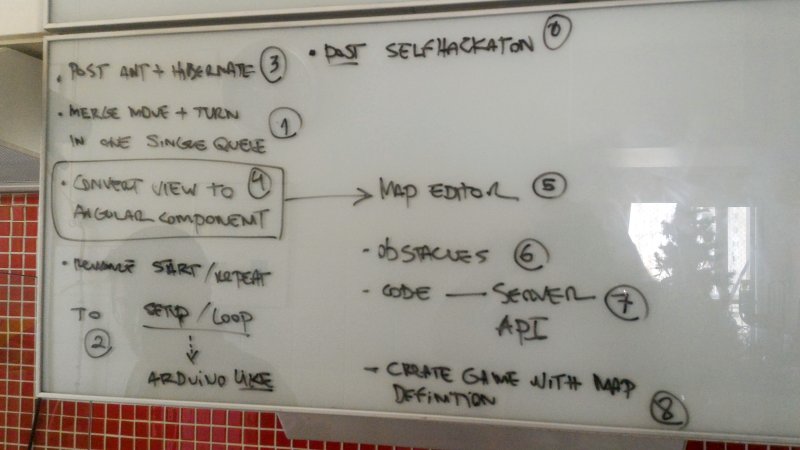 • POST ANT + HIBERNATE 3
• MERGE MOVE + TURN
IN ONE SINGLE QUEUE 1
• CONVERT VIEW TO 4
ANGULAR COMPONENT
• RENAME START / REPEAT
TO SETUP / LOOP
2
ARDUINO LIKE
• POST SELFHACKATON 0
MAP EDITOR 5
- OBSTACLES 6
- CODE — SERVER 7
API
- CREATE GAME WITH MAP
DEFINITION 8